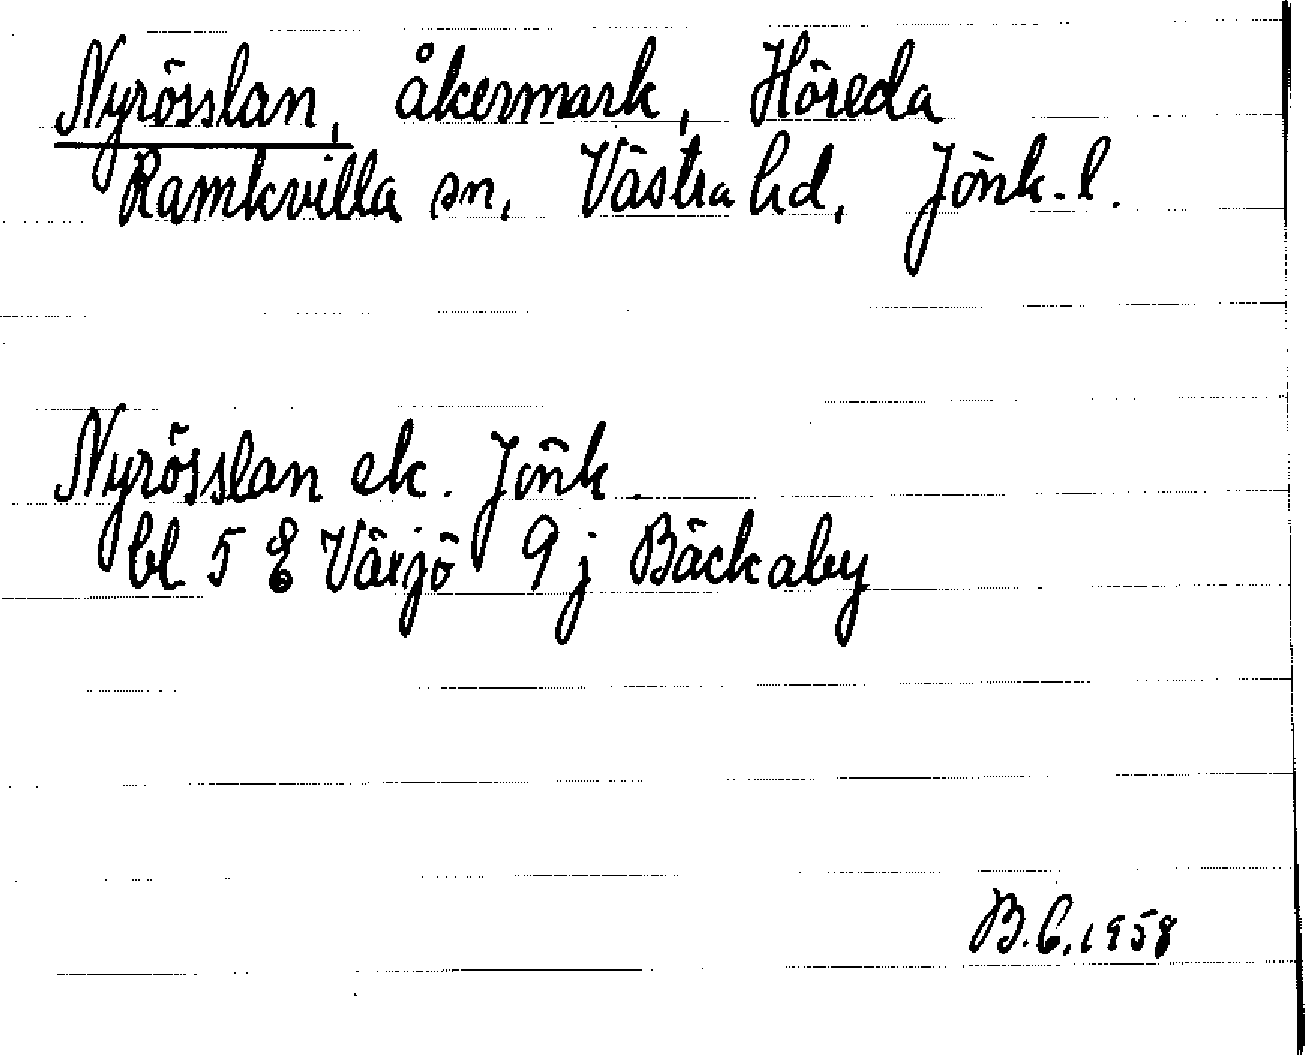 Nyrösslan, åkermark, Höreda
Ramkvilla sn, Västra hd, Jönk. l.
Nyrösslan ek. Jönk.
bl 5 E Växjö 9 j Bäckaby
B.C. 1958